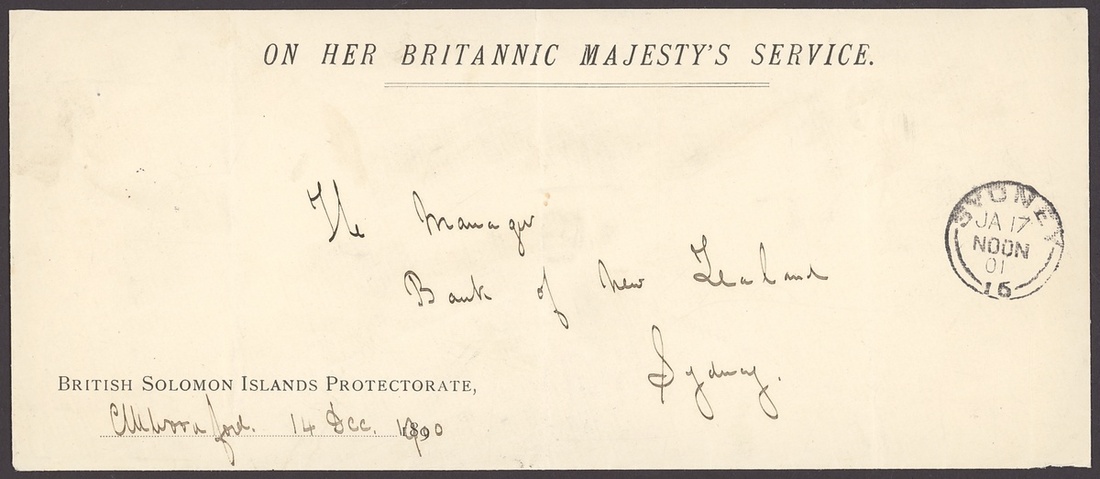 ON HER BRITANNIC MAJESTY'S SERVICE.
The Manager
Bank of New Zealand
Sydney.
SYDNEY
JA 17
NOON
01
16
BRITISH SOLOMON ISLANDS PROTECTORATE,
CMWoodford. 14 Dec. 1900